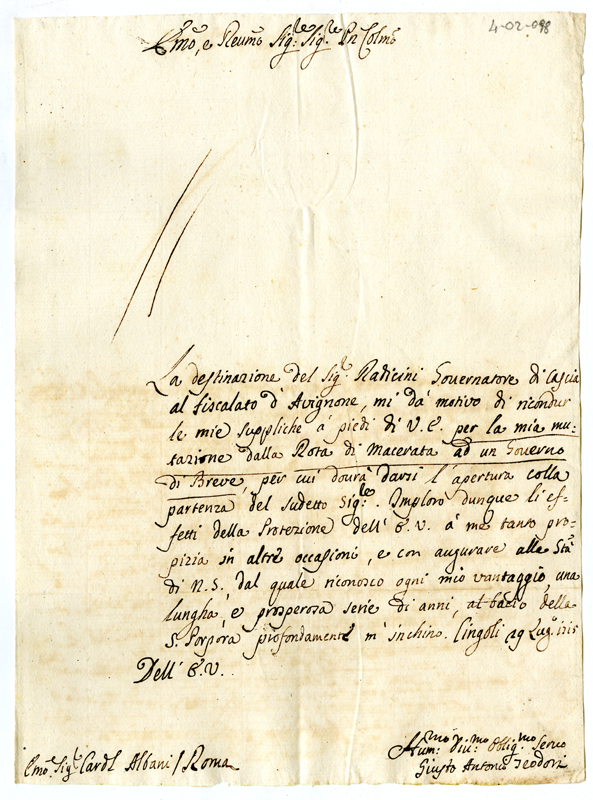 4-02-098
Emo, e Reumo Sig.re Sig.re Pn Colmo
La destinazione del Sig.r Radicini Gouernatore di Cascia
al fiscalato d'Avignone, mi dà motivo di ricondur
le mie suppliche a piedi di V. E. per la mia mu:
tazione dalla Rota di Macerata ad un Gouerno
di Breve, per cui dourà darsi l'apertura colla
partenza del sudetto Sig.re. Imploro dunque li ef-
fetti della Protezione dell'E. V. à me tanto pro-
pizia in altre occasioni, e con augurare alla Stà
di N. S., dal quale riconosco ogni mio vantaggio, una
lungha, e prosperosa serie di anni, al bacio della
S. Porpora profondamente m'inchino. Cingoli 29 Lug.o
Dell' E. V.
Hum:mo Diu:mo Obliq.mo Seruo
Emo Sig.r Cardl Albani / Roma
Giusto Antonio Teodori